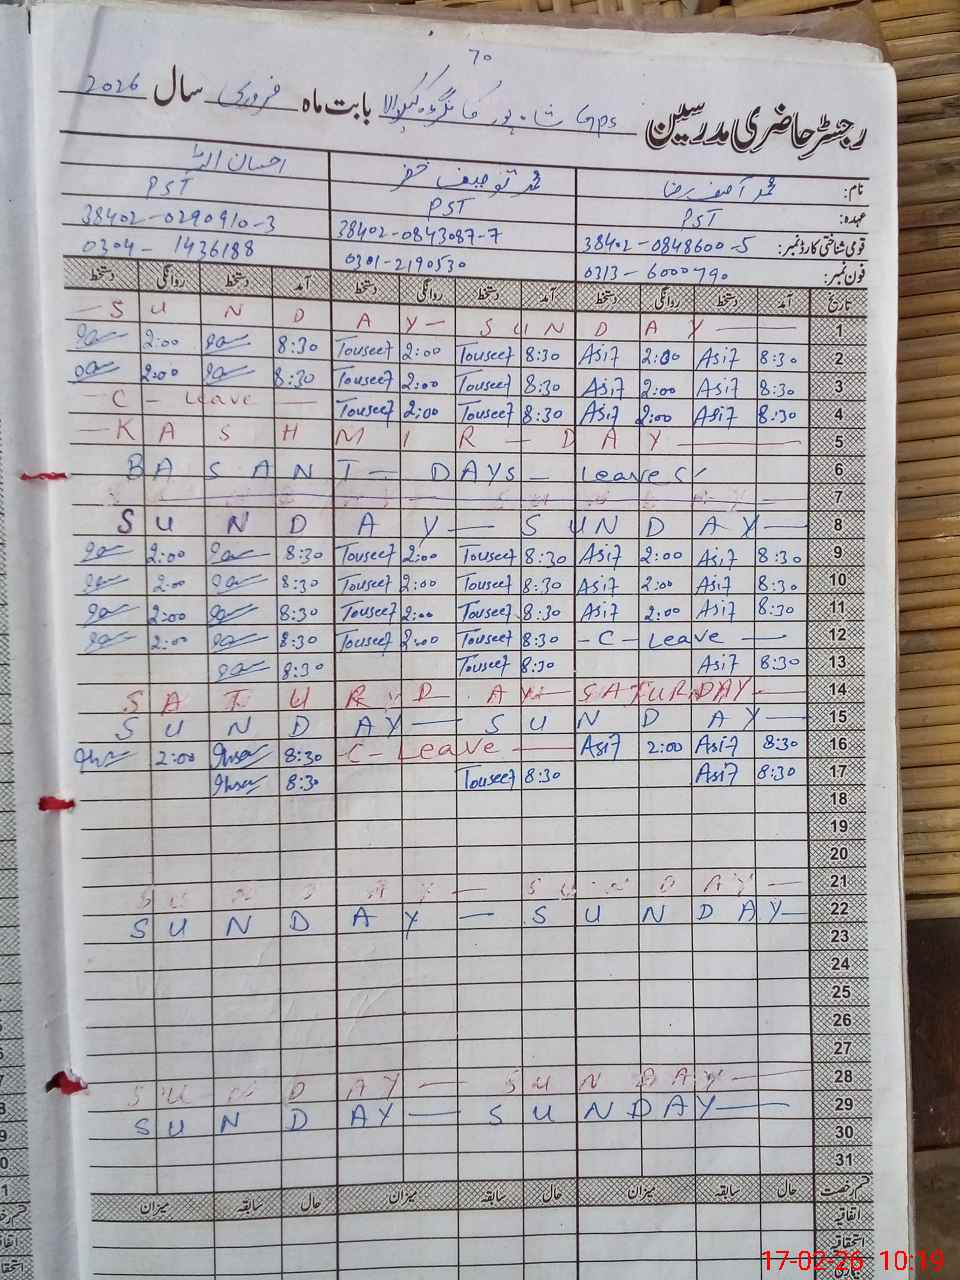 70
رجسٹر حاضری مدرسین Gps شاہ پور بابت ماہ فروری سال 2026
نام: محمد آصف رضا محمد توصیف خضر احسان اللہ
عہدہ: PST PST PST
قومی شناختی کارڈ نمبر: 38402-0848600-5 38402-0843087-7 38402-0290910-3
فون نمبر: 0313-6000790 0301-2190530 0304-1436188
تاریخ آمد دستخط روانگی دستخط آمد دستخط روانگی دستخط آمد دستخط روانگی دستخط
- S U N D A Y - S U N D A Y - 1
2:00 8:30 Touseef 2:00 Touseef 8:30 Asif 2:00 Asif 8:30 2
2:00 8:30 Touseef 2:00 Touseef 8:30 Asif 2:00 Asif 8:30 3
- C - Leave - Touseef 2:00 Touseef 8:30 Asif 2:00 Asif 8:30 4
- K A S H M I R - D A Y - 5
B A S A N T - D A Y S - Leaves 6
7
S U N D A Y - S U N D A Y - 8
2:00 8:30 Touseef 2:00 Touseef 8:30 Asif 2:00 Asif 8:30 9
2:00 8:30 Touseef 2:00 Touseef 8:30 Asif 2:00 Asif 8:30 10
2:00 8:30 Touseef 2:00 Touseef 8:30 Asif 2:00 Asif 8:30 11
2:00 8:30 Touseef 2:00 Touseef 8:30 - C - Leave - 12
8:30 Touseef 8:30 Asif 8:30 13
S A T U R D A Y - S A T U R D A Y - 14
S U N D A Y - S U N D A Y - 15
2:00 8:30 - C - Leave - Asif 2:00 Asif 8:30 16
8:30 Touseef 8:30 Asif 8:30 17
18
19
20
S U N D A Y - S U N D A Y - 21
S U N D A Y - S U N D A Y - 22
23
24
25
26
27
S U N D A Y - S U N D A Y - 28
S U N D A Y - S U N D A Y - 29
30
31
قسم رخصت حال سابقہ میزان حال سابقہ میزان حال سابقہ میزان
اتفاقیہ
استحقاقیہ
17-02-26 10:19